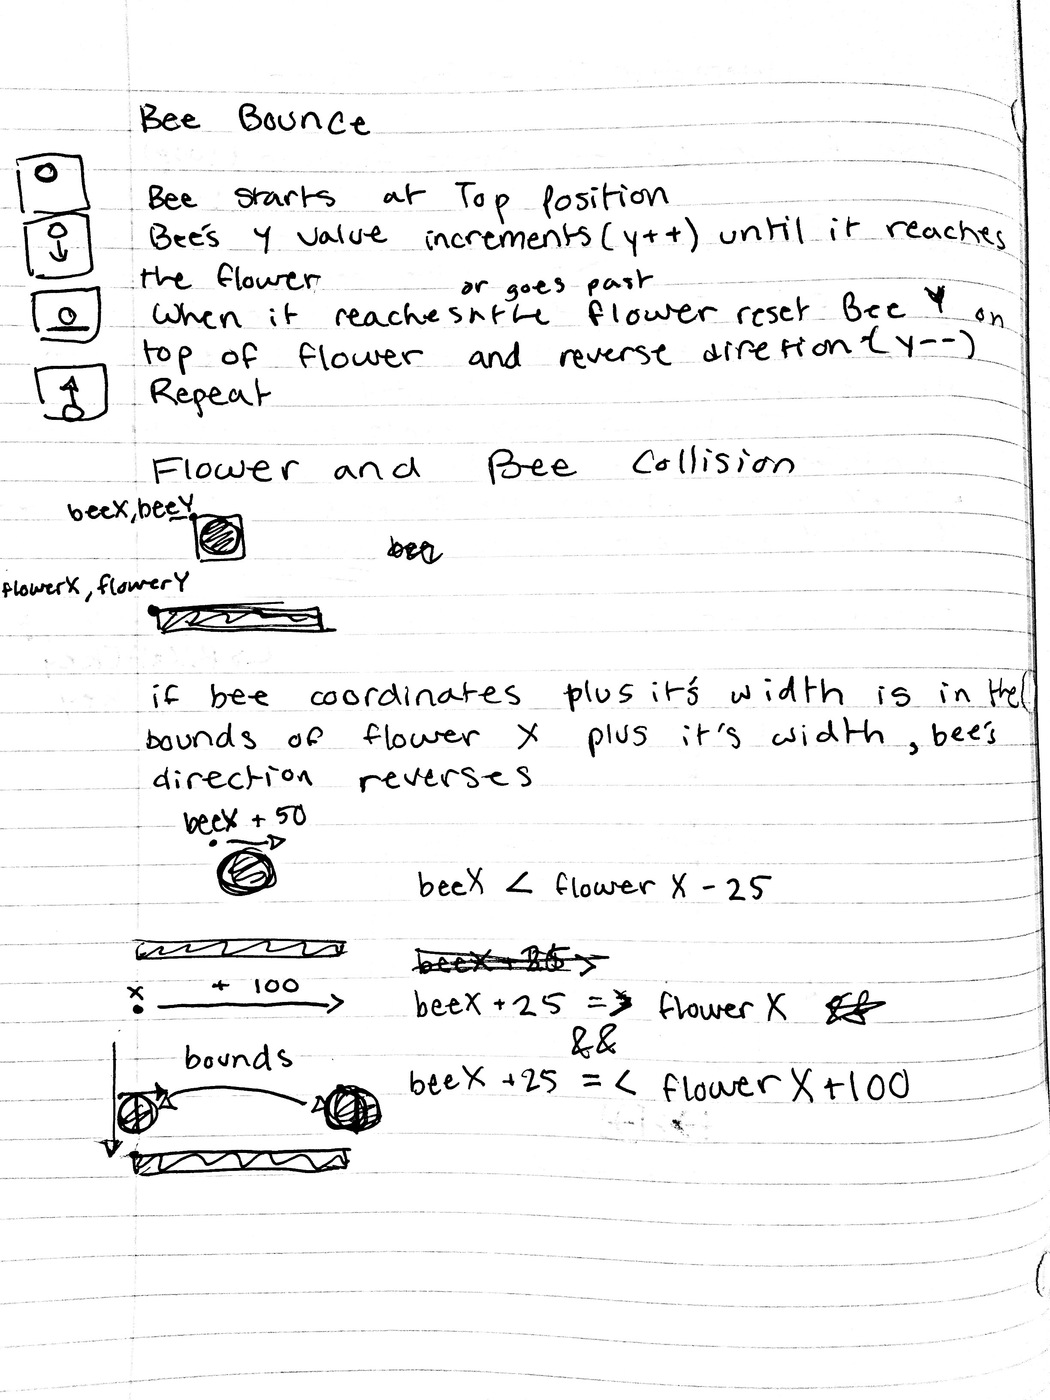 Bee Bounce
Bee starts at Top Position
Bee's y value increments (y++) until it reaches
the flower
or goes past
When it reaches the flower reset Bee Y on
top of flower and reverse diretion (y--)
Repeat
Flower and Bee Collision
beeX, beeY
bee
flowerX, flowerY
if bee coordinates plus it's width is in the
bounds of flower X plus it's width, bee's
direction reverses
beeX + 50
beeX < flower X - 25
beeX + 25 >
x + 100
beeX + 25 => flower X &&
&&
bounds
beeX +25 =< flower X+100